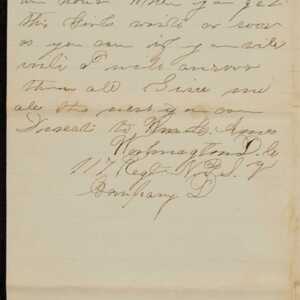 When you get
this write as soon
as you can if you will
write I will answer
them all Give me
all the news you can
Direct to
Washington D. C.
117 Regt N. Y. S. V
Company D